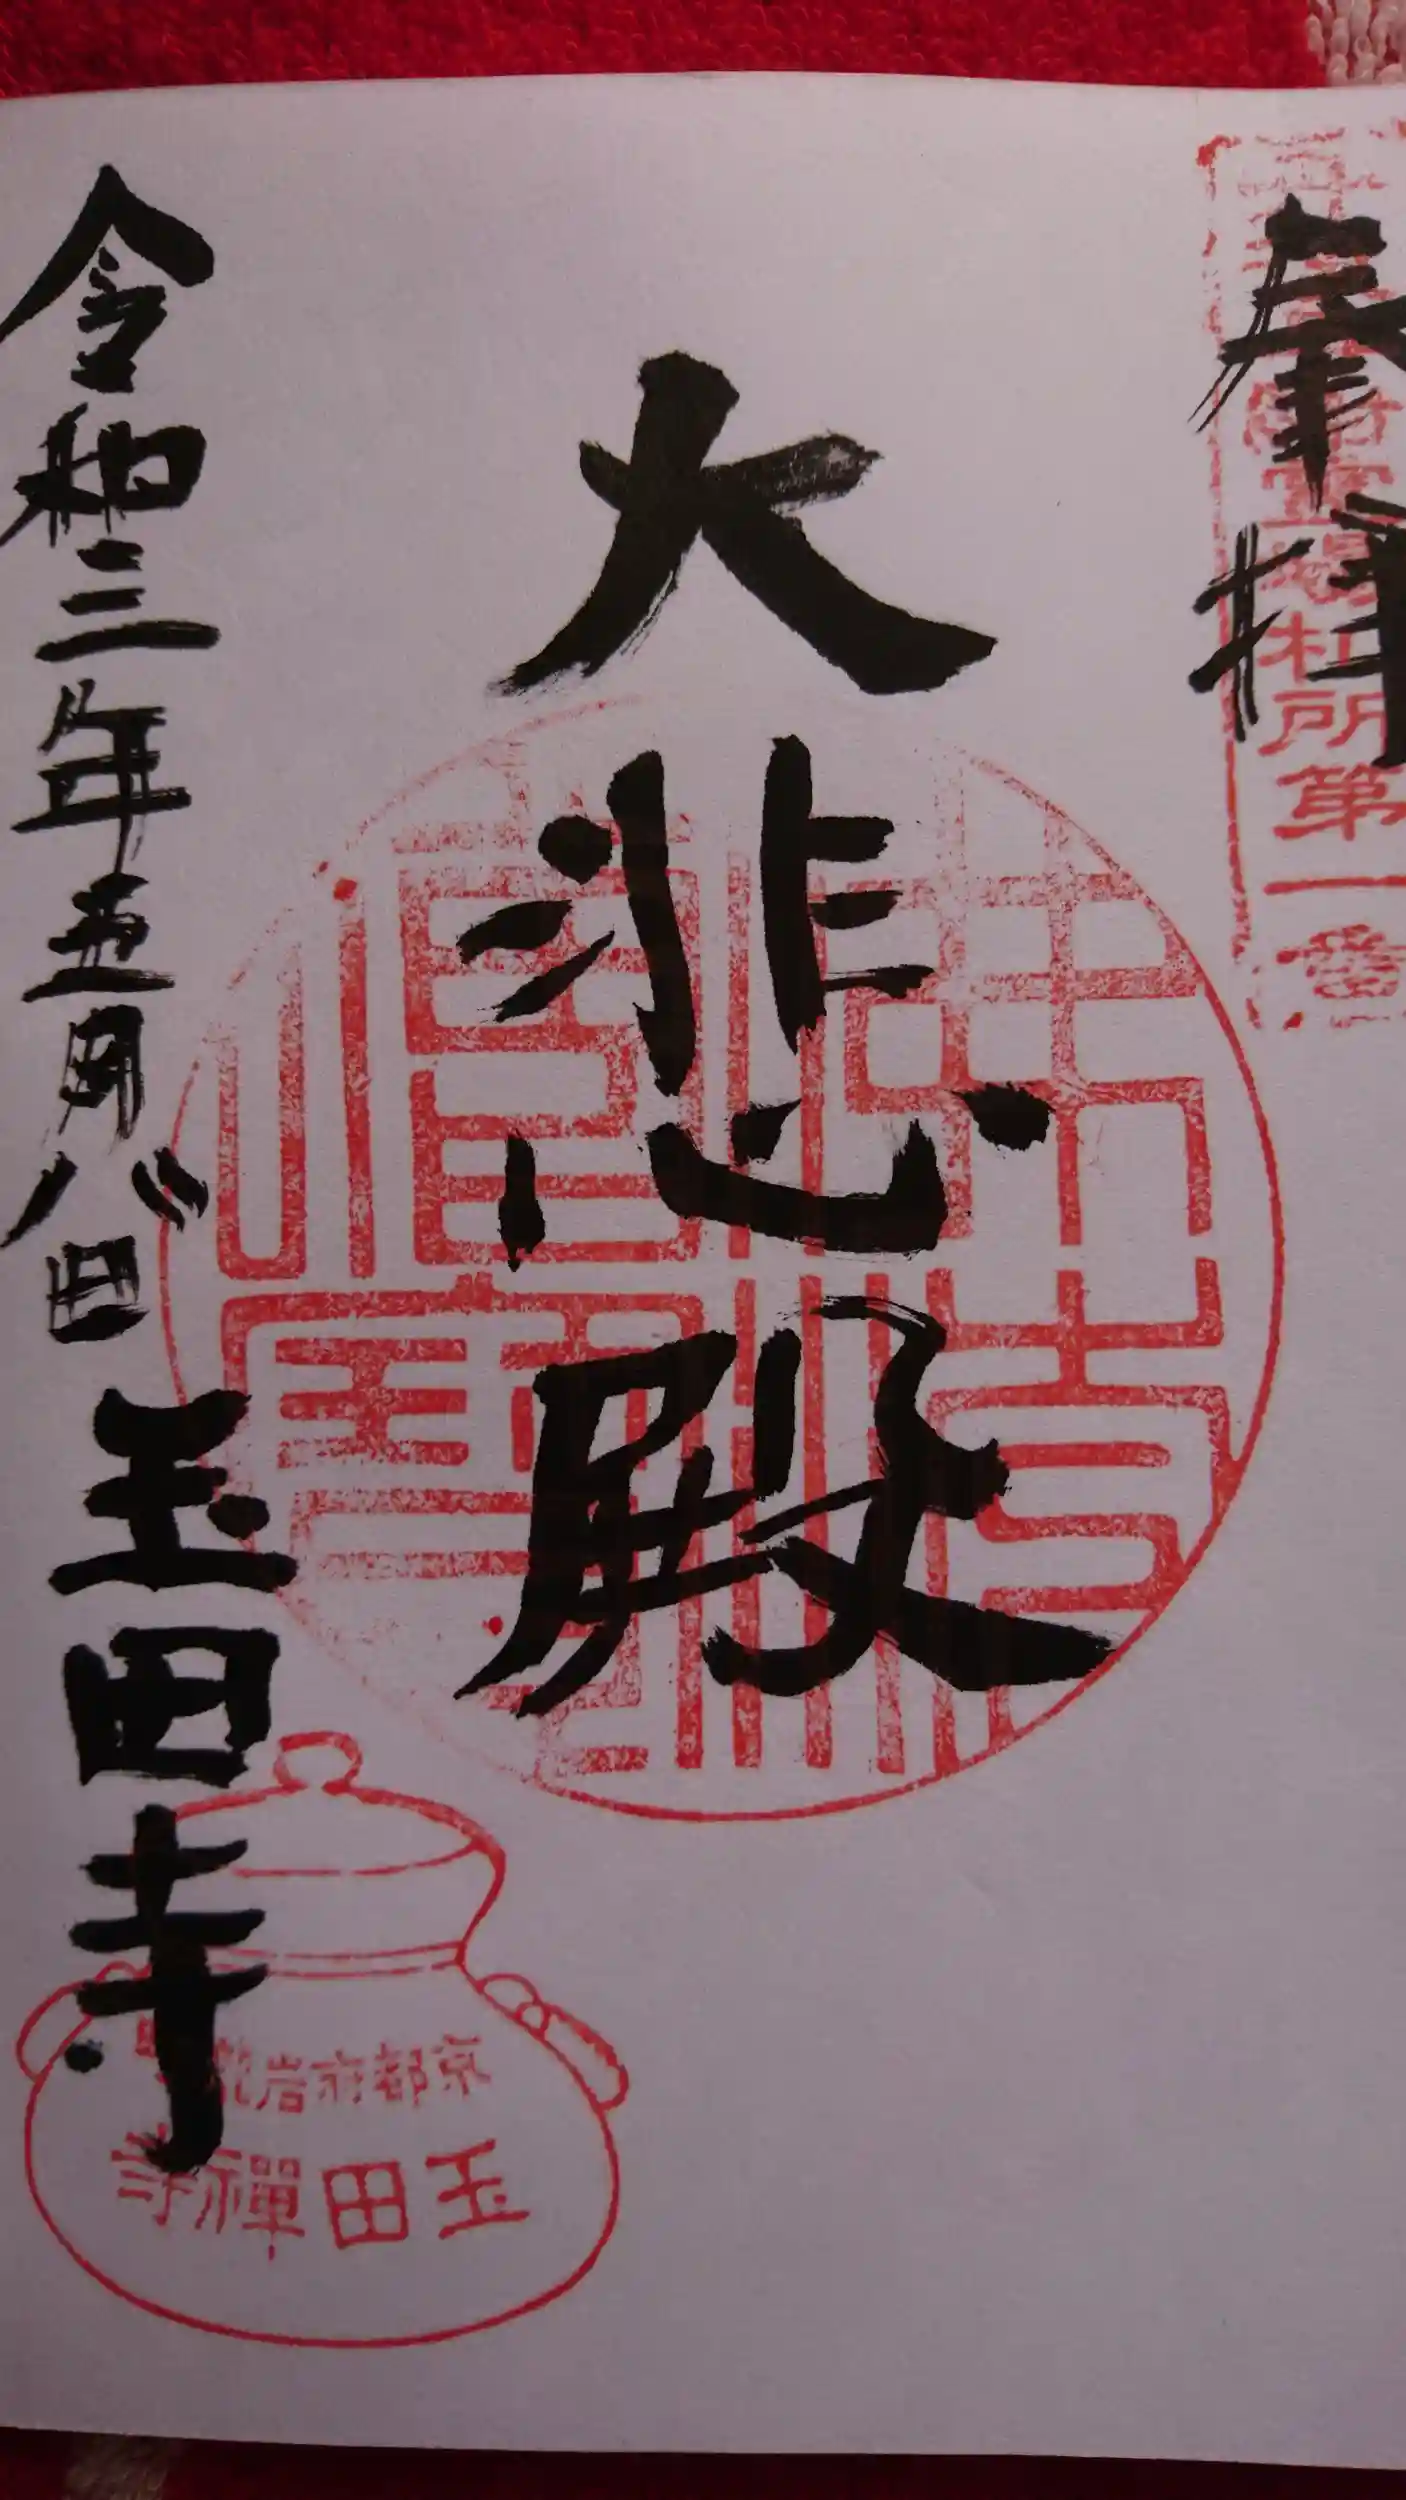 奉拝
札所第一番
大悲殿
佛法僧寶
令和三年五月八日 玉田寺
京都府岩
玉田禅寺